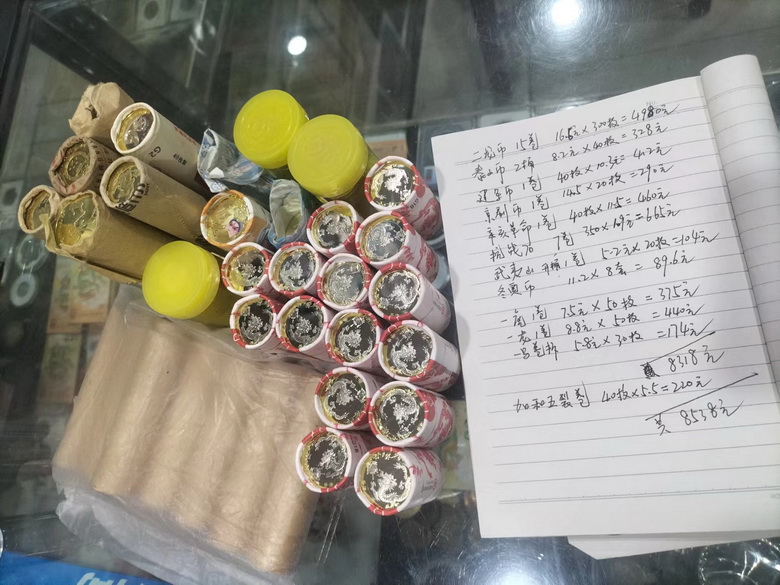 G2
二龙币 15卷 16.6元×300枚=4980元
泰山币 2桶 8.2元×40枚=328元
建军币 1卷 40枚×10.3元=412元
京剧币 1卷 14.5×20枚=290元
辛亥革币 1卷 40枚×11.5=460元
抗战70 7卷 350×1.9元=665元
武夷山 1卷 5.2元×20枚=104元
冬奥币 11.2×8套=89.6元
一虎1卷 7.5元×50枚=375元
一龙1卷 8.8元×50枚=440元
一马卷拆 5.8元×30枚=174元
8318元
加和五裂卷 40枚×5.5=220元
共8538元